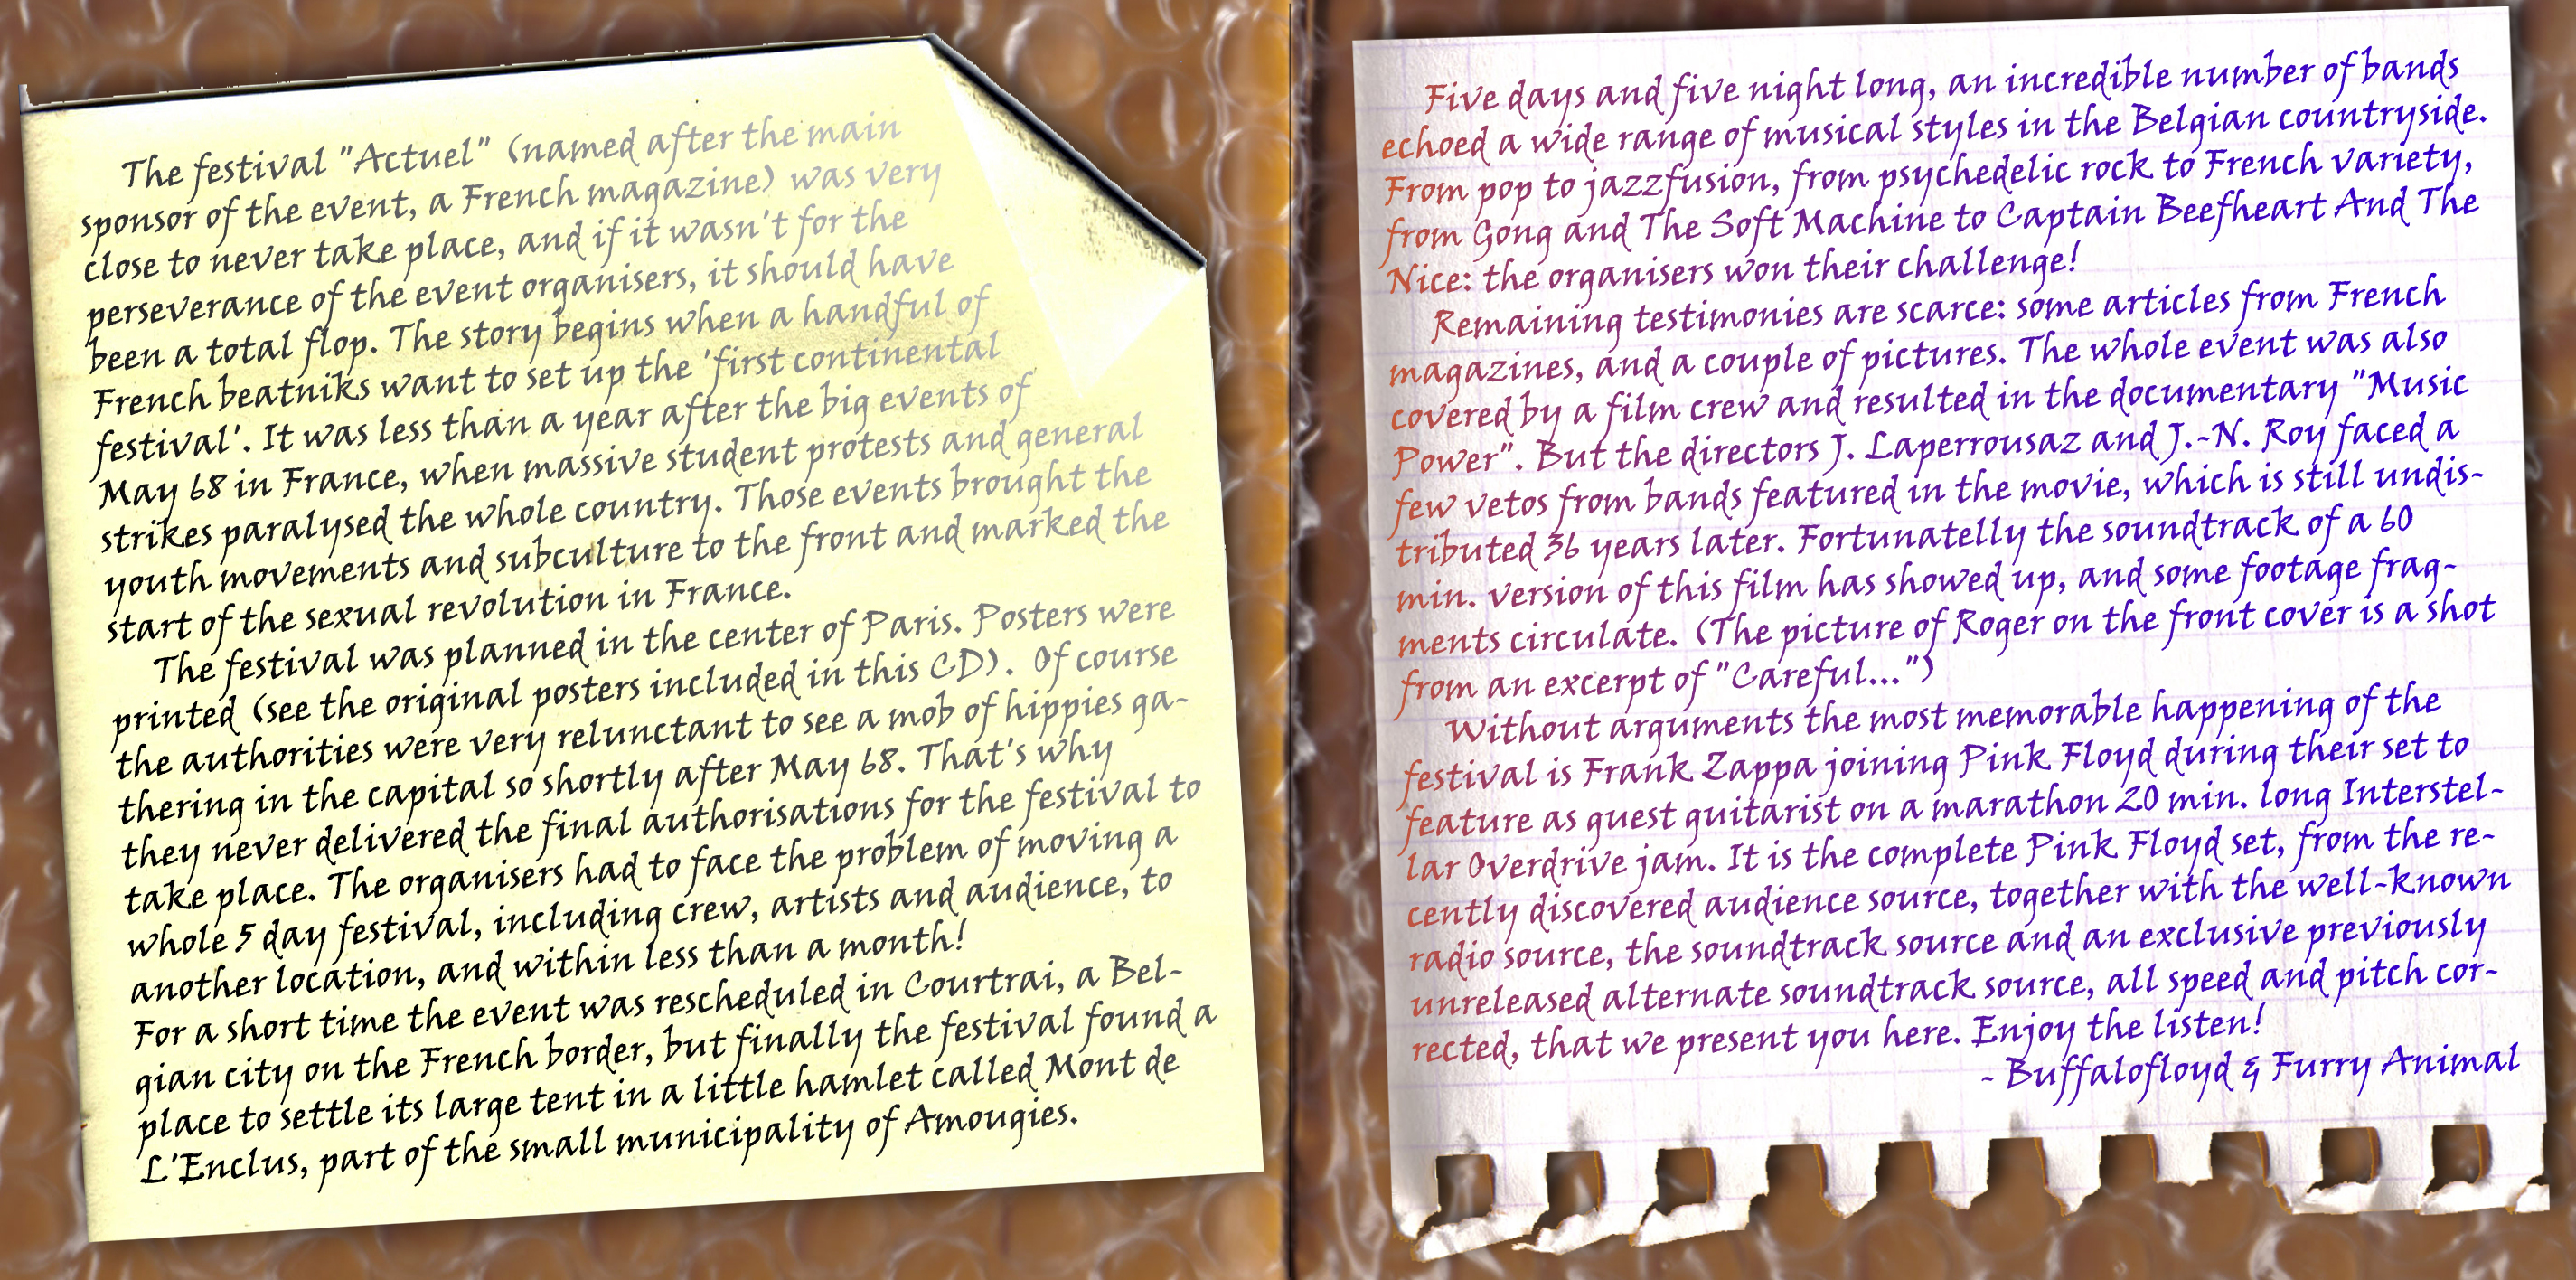 The festival "Actuel" (named after the main
sponsor of the event, a French magazine) was very
close to never take place, and if it wasn't for the
perseverance of the event organisers, it should have
been a total flop. The story begins when a handful of
French beatniks want to set up the 'first continental
festival'. It was less than a year after the big events of
May 68 in France, when massive student protests and general
strikes paralysed the whole country. Those events brought the
youth movements and subculture to the front and marked the
start of the sexual revolution in France.
The festival was planned in the center of Paris. Posters were
printed (see the original posters included in this CD). Of course
the authorities were very relunctant to see a mob of hippies ga-
thering in the capital so shortly after May 68. That's why
they never delivered the final authorisations for the festival to
take place. The organisers had to face the problem of moving a
whole 5 day festival, including crew, artists and audience, to
another location, and within less than a month!
For a short time the event was rescheduled in Courtrai, a Bel-
gian city on the French border, but finally the festival found a
place to settle its large tent in a little hamlet called Mont de
L'Enclus, part of the small municipality of Amougies.
Five days and five night long, an incredible number of bands
echoed a wide range of musical styles in the Belgian countryside.
From pop to jazzfusion, from psychedelic rock to French variety,
from Gong and The Soft Machine to Captain Beefheart And The
Nice: the organisers won their challenge!
Remaining testimonies are scarce: some articles from French
magazines, and a couple of pictures. The whole event was also
covered by a film crew and resulted in the documentary "Music
Power". But the directors J. Laperrousaz and J.-N. Roy faced a
few vetos from bands featured in the movie, which is still undis-
tributed 36 years later. Fortunatelly the soundtrack of a 60
min. version of this film has showed up, and some footage frag-
ments circulate. (The picture of Roger on the front cover is a shot
from an excerpt of "Careful...")
Without arguments the most memorable happening of the
festival is Frank Zappa joining Pink Floyd during their set to
feature as guest guitarist on a marathon 20 min. long Interstel-
lar Overdrive jam. It is the complete Pink Floyd set, from the re-
cently discovered audience source, together with the well-known
radio source, the soundtrack source and an exclusive previously
unreleased alternate soundtrack source, all speed and pitch cor-
rected, that we present you here. Enjoy the listen!
- Buffalofloyd & Furry Animal